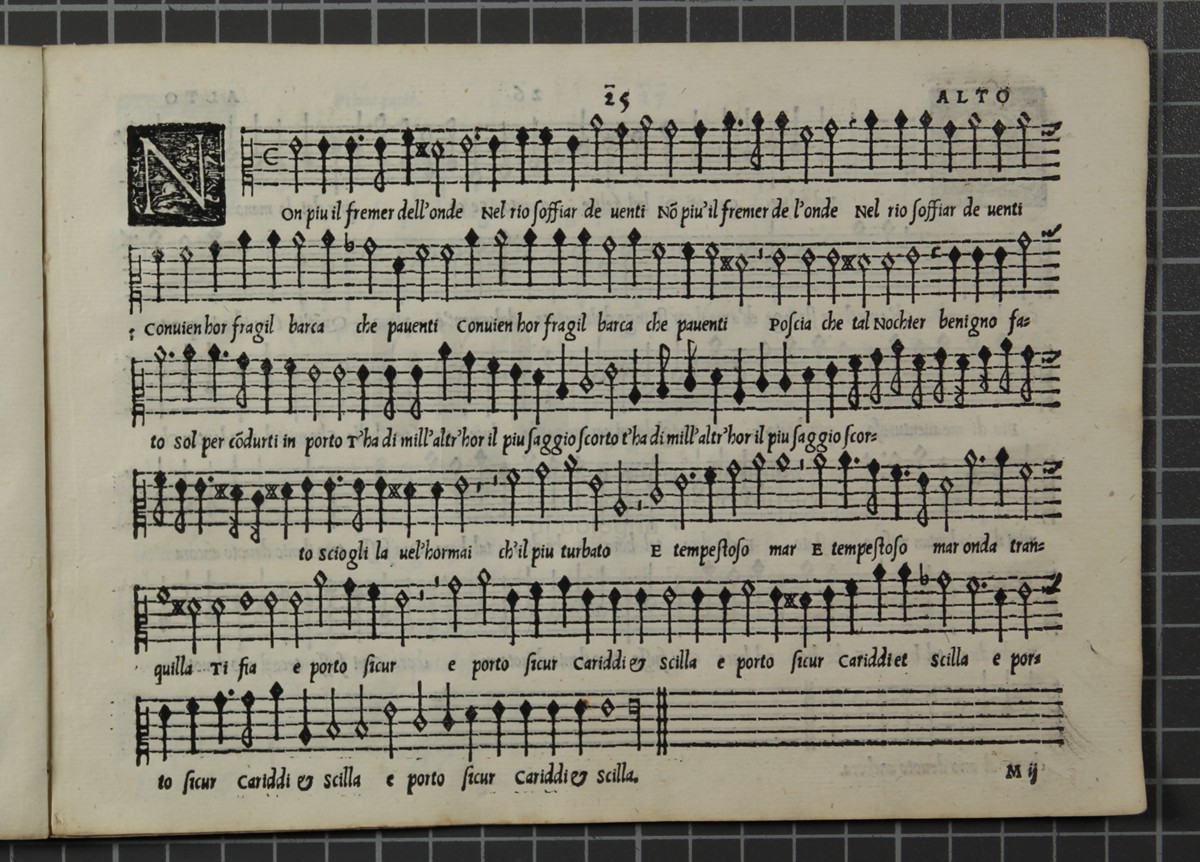 25 ALTO
NOn piu il fremer dell'onde Nel rio soffiar de uenti Nõ piu'il fremer de l'onde Nel rio soffiar de uenti
: Conuien hor fragil barca che pauenti Conuien hor fragil barca che pauenti Poscia che tal Nochier benigno fa=
to Sol per cõdurti in porto T'ha di mill'altr'hor il piu saggio scorto t'ha di mill'altr'hor il piu saggio scor=
to sciogli la uel'hormai ch'il piu turbato E tempestoso mar E tempestoso mar onda tran=
quilla Ti fia e porto sicur e porto sicur Cariddi & Scilla e porto sicur Cariddi et Scilla e por=
to sicur Cariddi & Scilla e porto sicur Cariddi & Scilla.
M ij